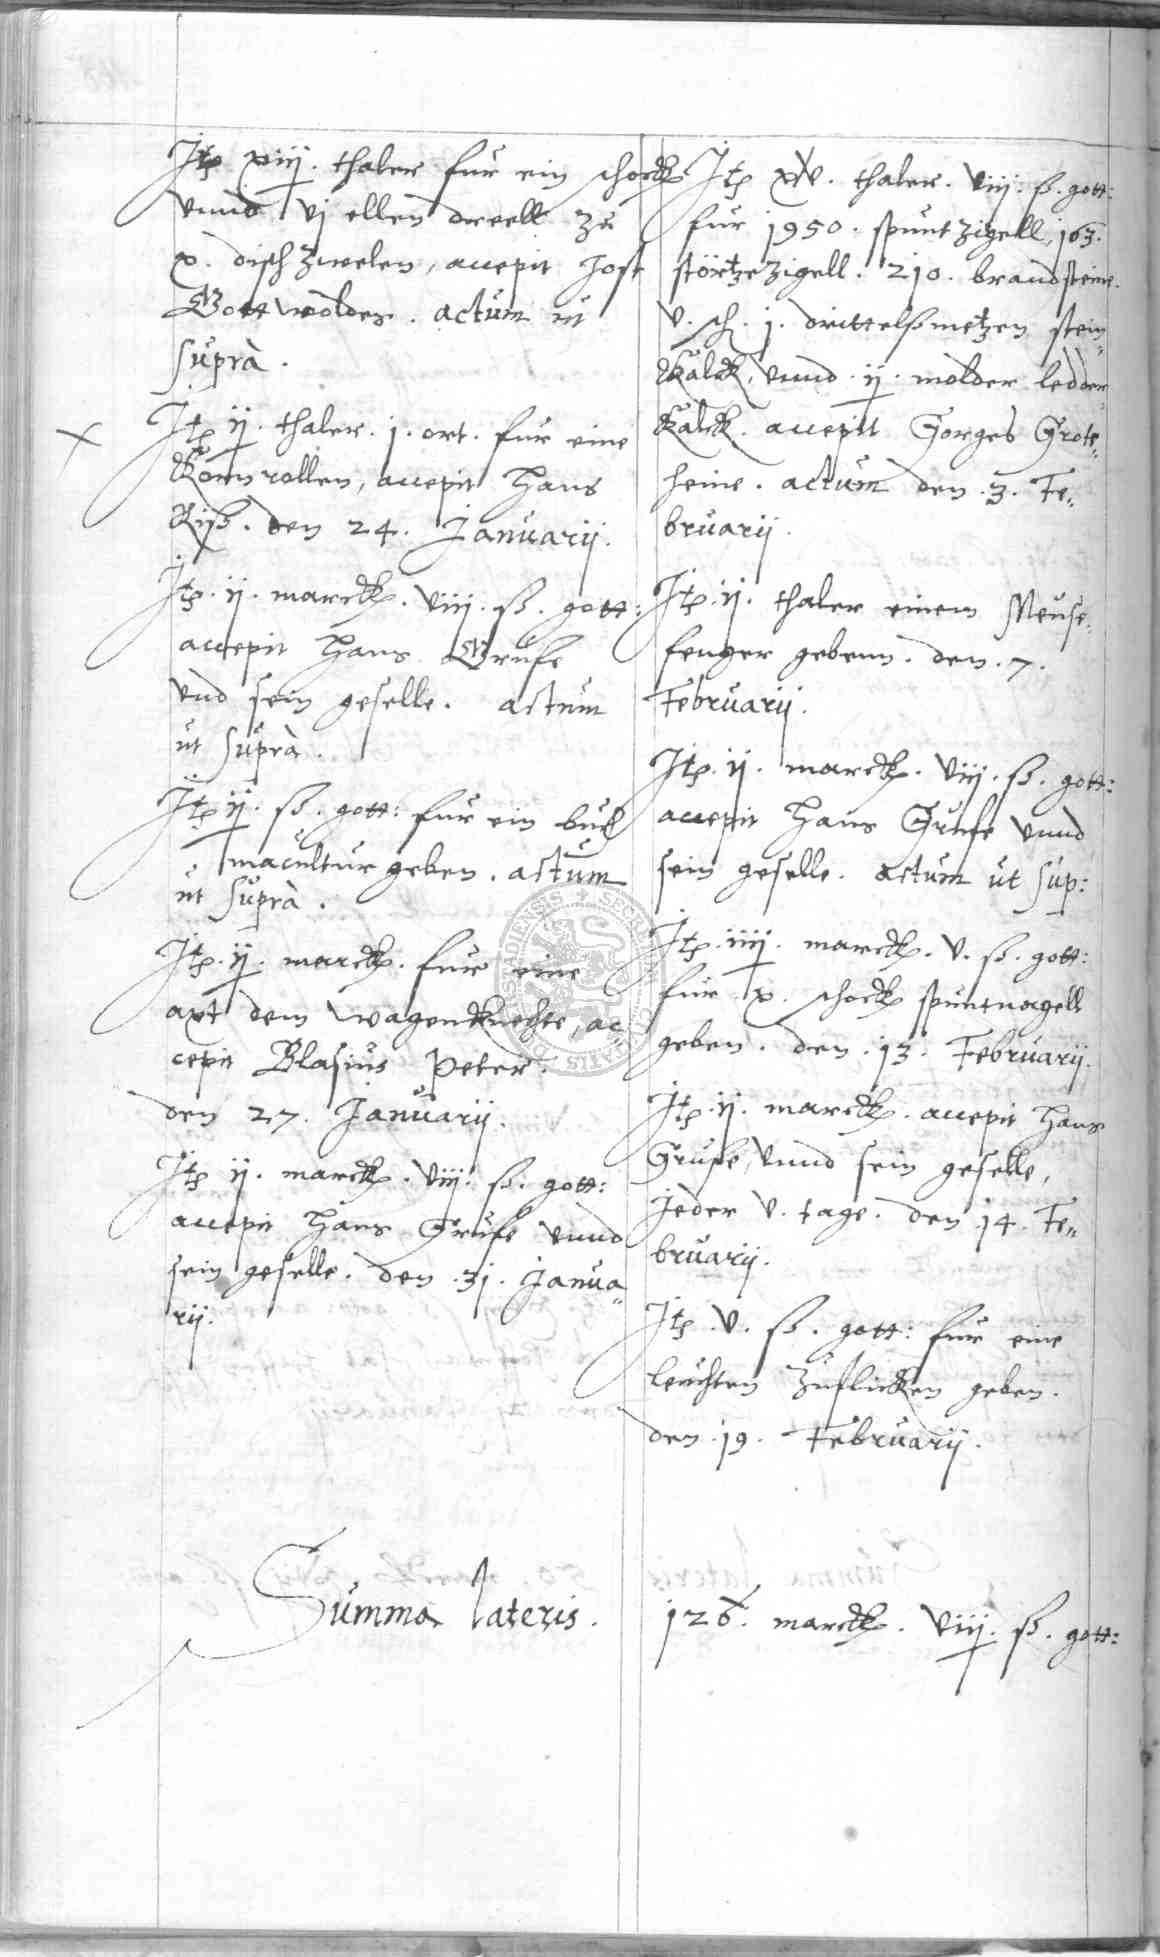 Itp xiij. thaler fur ein schogk
vnnd vj ellen dreell zu
x. disch zwelen, accepit Jost
Gottwoldes. actum ut
supra.
Itp ij. thaler. j. ort. fur eine
Kornrollen, accepit Hans
Ryß. den 24. Januarij.
Itp. ij. marck. viij. ß. gott:
accepit Hans Gruse
vnd sein geselle. actum
ut supra.
Itp ij. ß. gott: fur ein buch
macultur geben. actum
ut supra.
Itp. ij. marck. fur eine
axt dem wagenknechte, ac
cepit Blasius Peter.
den 27. Januarij.
Itp ij. marck. viij. ß. gott:
accepit Hans Gruse vnnd
sein geselle. den .31. Janua„
rij.
Itp xv. thaler. viij. ß. gott:
fur 1950. spuntzigell, 163.
störtzezigell. 210. brandsteine.
v. sch. j. drittelßmetzen stein„
Kalck, vnnd .ij. molder ledder„
Kalck. accepit Gorges Grote„
heine. actum den .3. Fe„
bruarij.
Itp. ij. thaler einem Meuse„
fenger gebenn. den .7.
Februarij.
Itp. ij. marck. viij. ß. gott:
accepit Hans Gruse vnnd
sein geselle. actum ut sup:
Itp. iiij. marck. v. ß. gott:
fur .x. schogk spuntnagell
geben. den .13. Februarij.
Itp. ij. marck. accepit Hans
Gruse, vnnd sein geselle,
Jeder v. tage. den 14. Fe„
bruarij.
Itp .v. ß. gott: fur eine
leuchten zuflicken geben.
den .19. Februarij.
Summa lateris. 126. marck. viij. ß. gott: